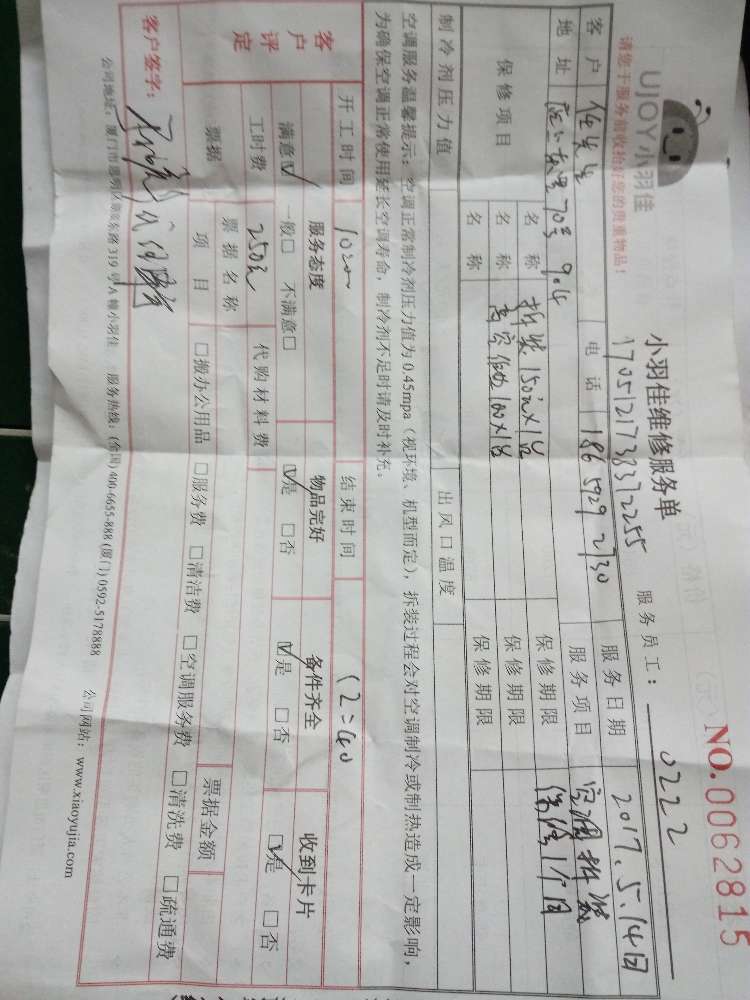 UJOY小羽佳
小羽佳维修服务单
NO.0062815
请您于服务前收拾好您的贵重物品！
17051217383712255
服务员工：0222
客户 任先生 电话 186 5929 2730 服务日期 2017.5.14日
地址 70号 904 服务项目 空调拆装
保修项目 名称 拆装150元×1台 保修期限 保修1个月
名称 保修期限
名称 保修期限
制冷剂压力值 出风口温度
空调服务温馨提示：空调正常制冷剂压力值为0.45mpa（视环境、机型而定），拆装过程会对空调制冷或制热造成一定影响，
为确保空调正常使用延长空调寿命，制冷剂不足时请及时补充。
开工时间 10:00 结束时间 12:40
客户评定 服务态度 物品完好 备件齐全 收到卡片
满意☑ 一般□ 不满意□ ☑是 □否 ☑是 □否 ☑是 □否
工时费 250元 代购材料费
票据 票据名称 票据金额
项目 □搬办公用品 □服务费 □清洁费 □空调服务费 □清洗费 □疏通费
客户签字：
公司地址：厦门市思明区 319号A幢小羽佳 服务热线：(全国)400-6655-888 (厦门)0592-5178888 公司网站：www.xiaoyujia.com